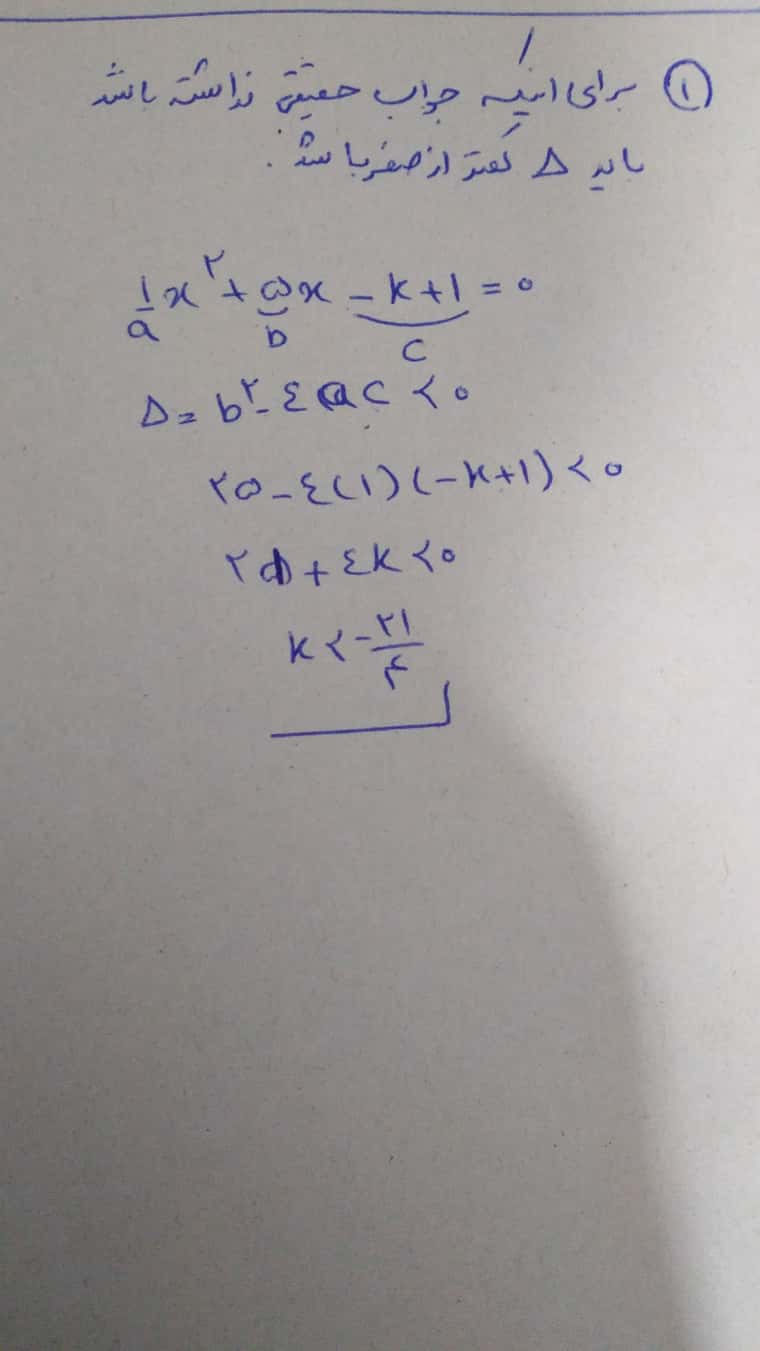 ① برای اینکه جواب حقیقی نداشته باشد
باید Δ کمتر از صفر باشد.
1x^۲ + ۵x - k + 1 = ۰
a b c
Δ = b^۲ - ٤ac < ۰
۲۵ - ٤(۱)(-k+1) < ۰
۲۱ + ٤k < ۰
k < -۲۱/۴